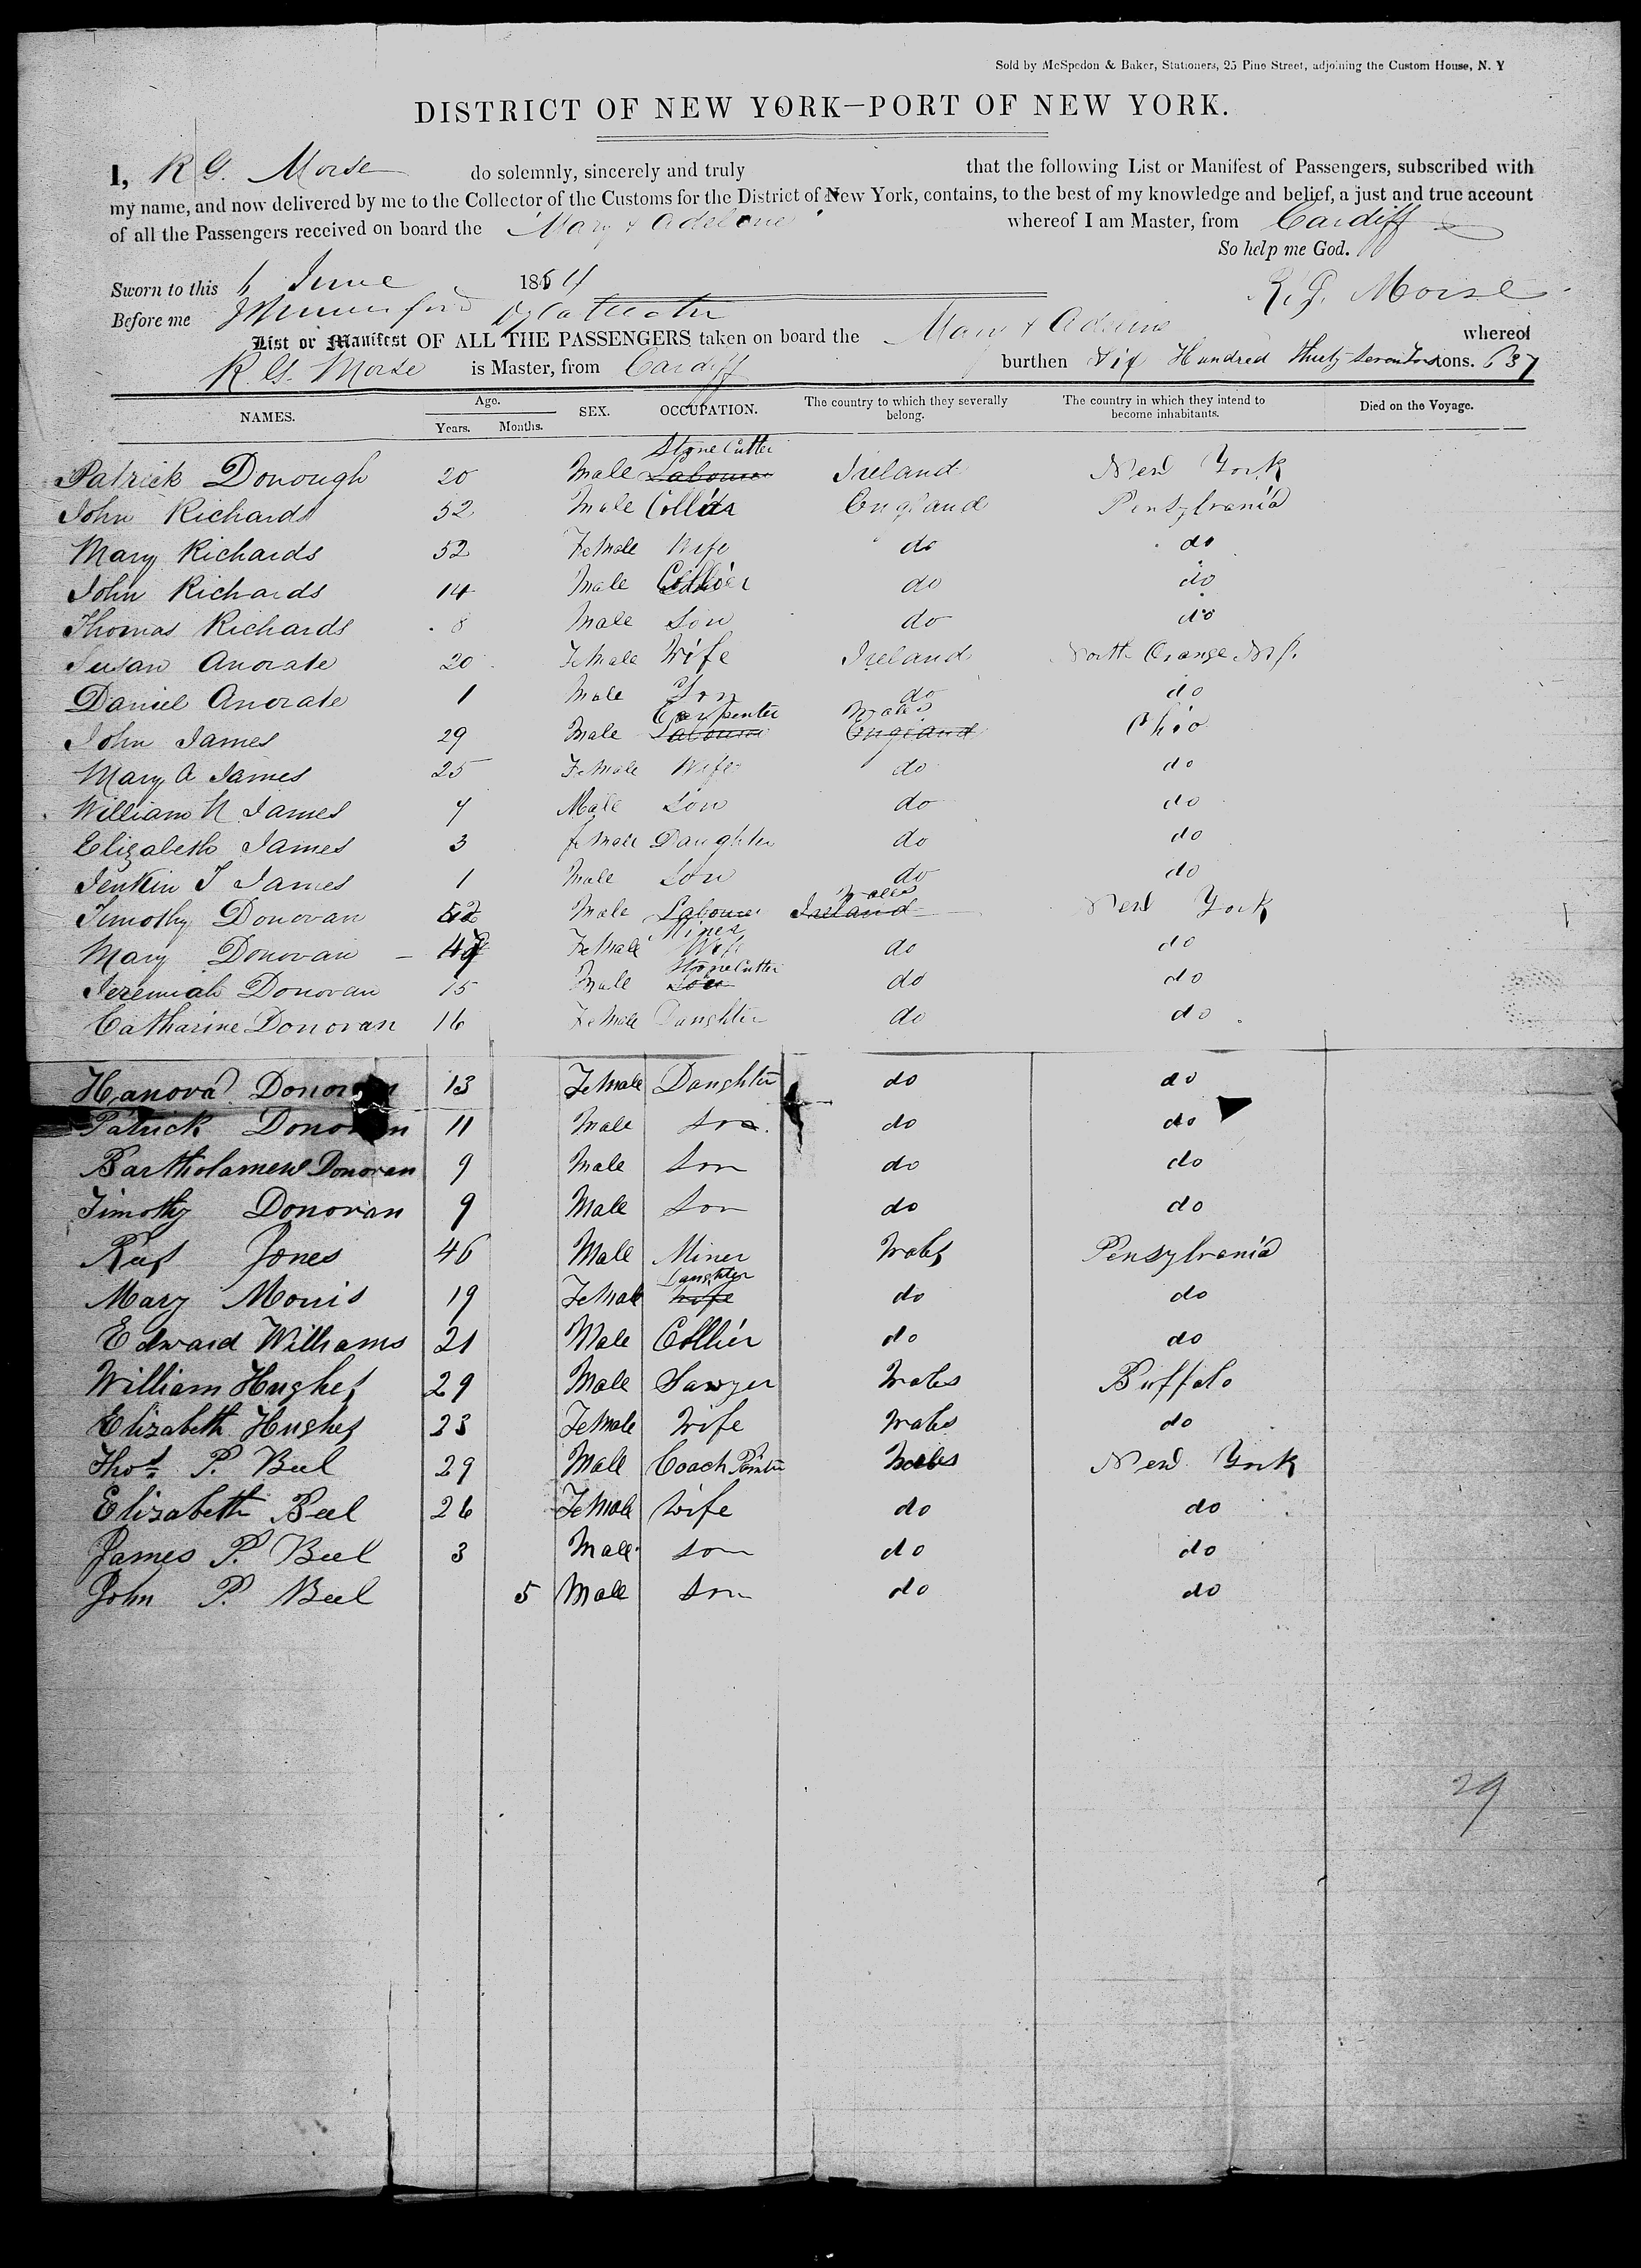 Sold by McSpedon & Baker, Stationers, 25 Pine Street, adjoining the Custom House, N. Y
DISTRICT OF NEW YORK—PORT OF NEW YORK.
I, R G. Morse do solemnly, sincerely and truly that the following List or Manifest of Passengers, subscribed with
my name, and now delivered by me to the Collector of the Customs for the District of New York, contains, to the best of my knowledge and belief, a just and true account
of all the Passengers received on board the Mary & Adeline whereof I am Master, from Cardiff
So help me God.
Sworn to this 6 June 1854
R. G. Morse
Before me
List or Manifest OF ALL THE PASSENGERS taken on board the Mary & Adeline whereof
R. G. Morse is Master, from Cardiff burthen Six Hundred thirty Seven tons. 637
NAMES. Age. Years. Months. SEX. OCCUPATION. The country to which they severally belong. The country in which they intend to become inhabitants. Died on the Voyage.
Patrick Donough 20 Male Labourer Stone Cutter Ireland New York
John Richards 52 Male Collier England Pensylvania
Mary Richards 52 Female Wife do do
John Richards 14 Male Collier do do
Thomas Richards 8 Male Son do do
Susan Anorate 20 Female Wife Ireland North Orange
Daniel Anorate 1 Male Son do do
John James 29 Male Labourer Carpenter England Wales Ohio
Mary A James 25 Female Wife do do
William H James 7 Male Son do do
Elizabeth James 3 female Daughter do do
Jenkin T James 1 Male Son do do
Timothy Donovan 52 Male Labourer Miner Ireland Wales New York
Mary Donovan Female Wife do do
Jeremiah Donovan 15 Male Son Stone Cutter do do
Catharine Donovan 16 Female Daughter do do
Hanora Donovan 13 Female Daughter do do
Patrick Donovan 11 Male Son do do
Bartholamew Donovan 9 Male Son do do
Timothy Donovan 9 Male Son do do
Rees Jones 46 Male Miner Wales Pensylvania
Mary Morris 19 Female Wife Daughter do do
Edward Williams 21 Male Collier do do
William Hughes 29 Male Sawyer Wales Buffalo
Elizabeth Hughes 23 Female Wife Wales do
Thos. P. Beel 29 Male Coach Painter Wales New York
Elizabeth Beel 26 Female Wife do do
James P. Beel 3 Male son do do
John P. Beel 5 Male Son do do
29